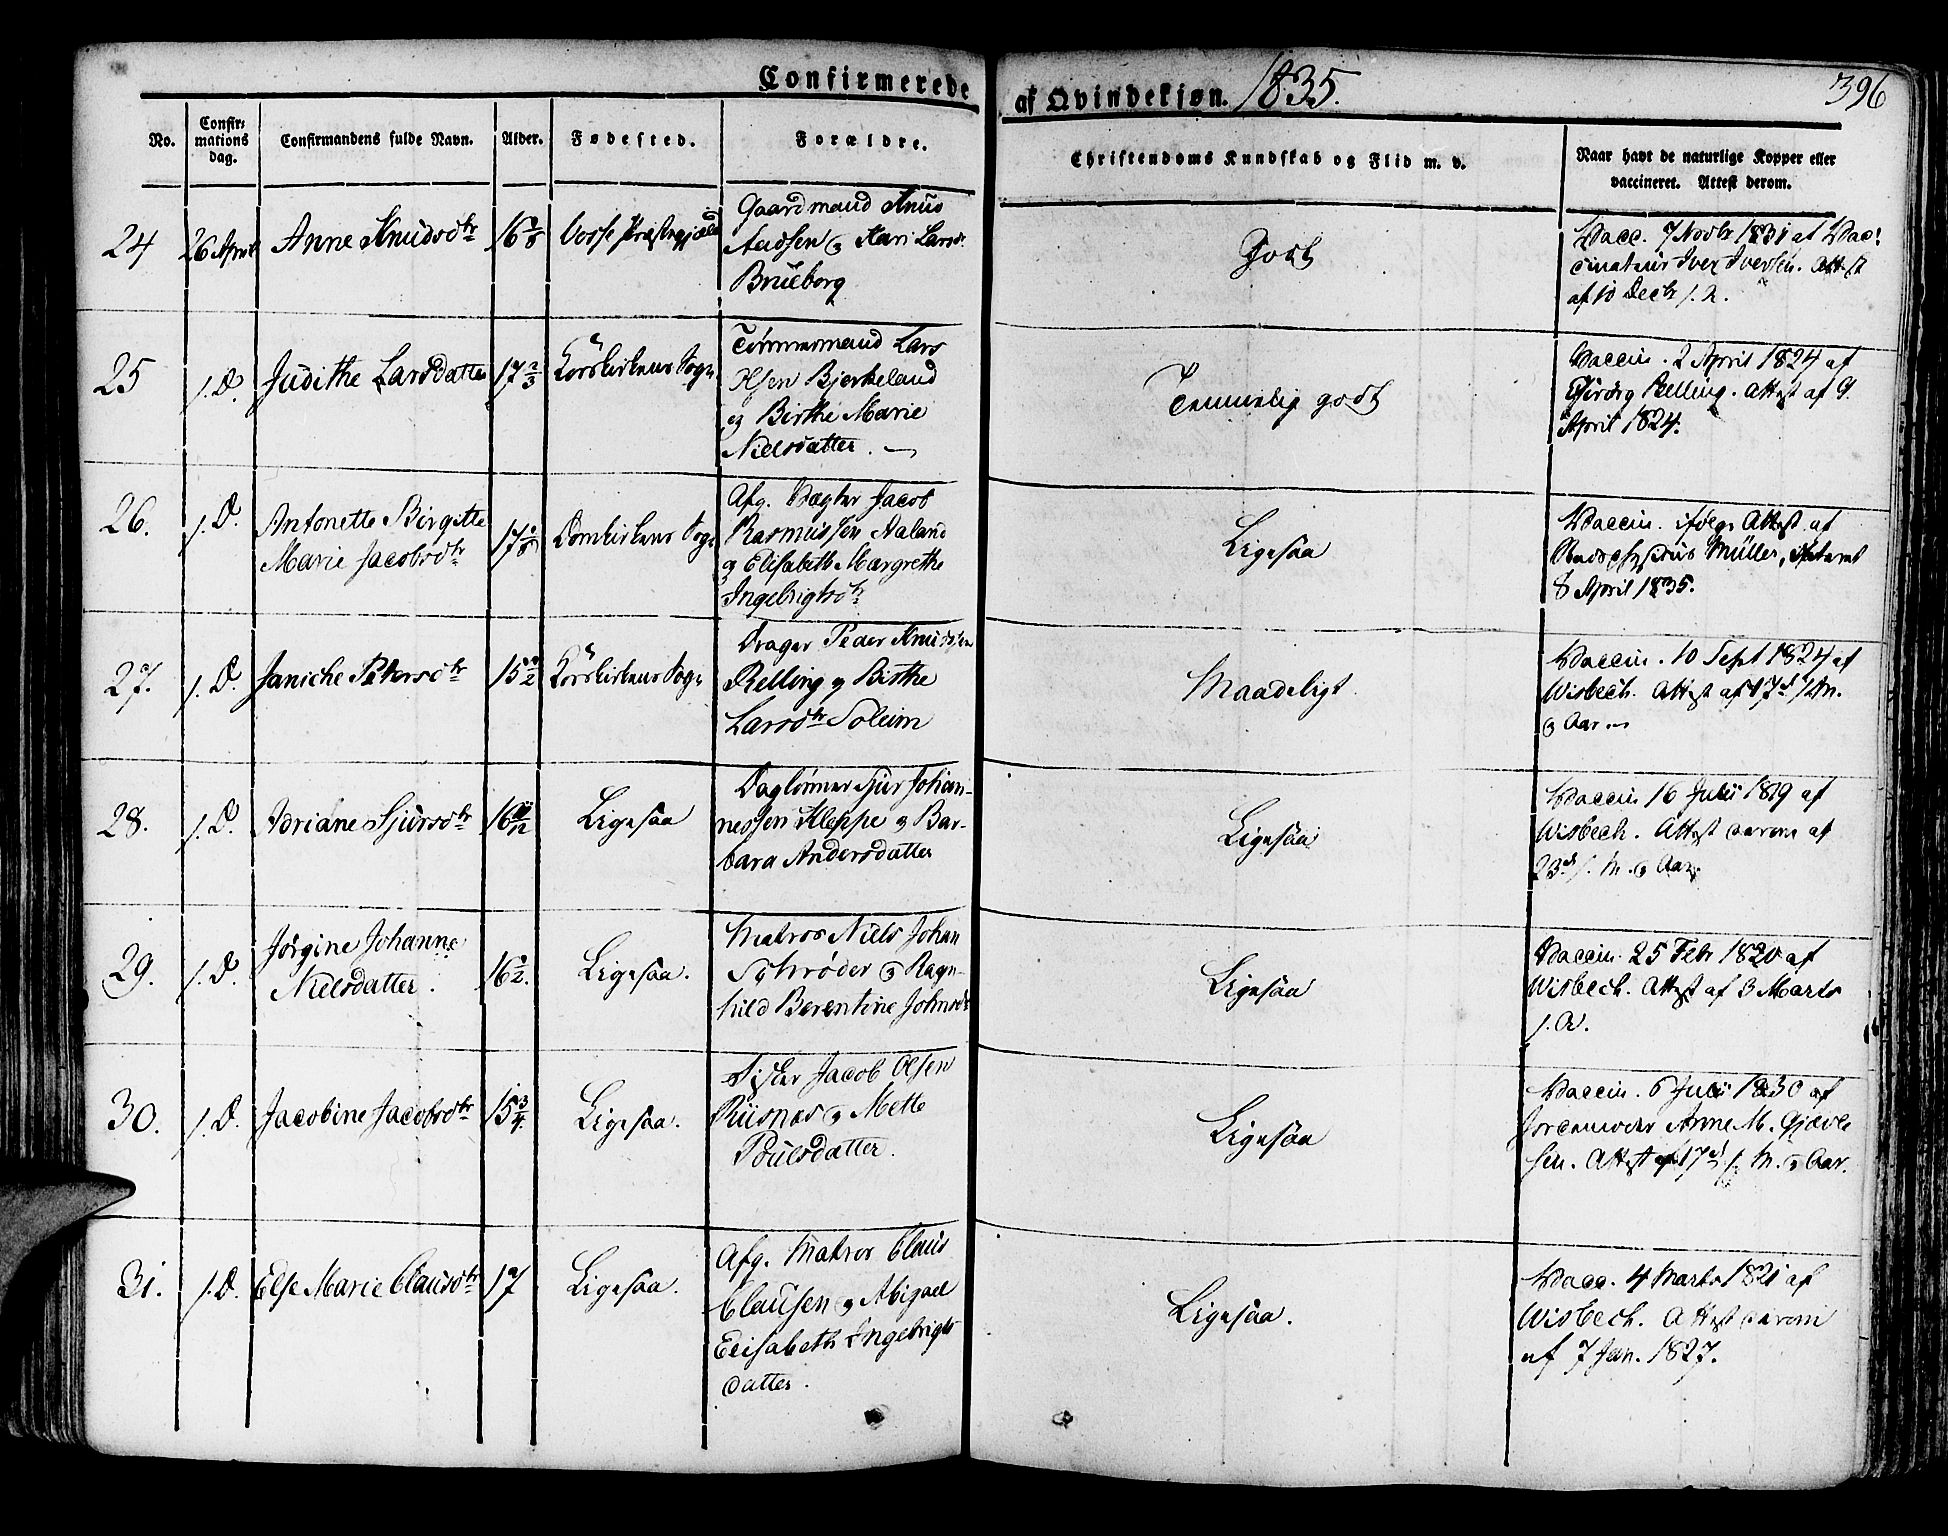 Confirmerede af Qvindekjøn. 1835. 396
No.
Confir-
mations
dag.
Confirmandens fulde Navn.
Alder.
Fødested.
Forældre.
Christendoms Kundskab og Flid m. v.
Naar havt de naturlige Kopper eller
vaccineret. Attest derom.
24
26 April
Anne Knudsdtr
16
Vosse Præstegjæld
Gaardmand Knud
og Kari Larsd.
Brüeborg
Godt
Vacc. 7 Novbr 1831 af Vac-
cinateur Iver Iversen. Attest
af 10 Decbr s. A.
25
s. D.
Judithe Larsdatter
17 2/3
Korskirkens Sogn
Tømmermand Lars
Olsen Bjerkeland
og Birthe Marie
Nielsdatter.
Temmelig godt
Vaccin. 2 April 1824 af
Relling. Attest af 9
April 1824.
26.
s. D.
Antonette Birgitte
Marie Jacobsdtr
17
Domkirkens Sogn
Afg. Vægter Jacob
Rasmussen Aaland
og Elisabeth Margrethe
Ingebrigtsdtr
Ligesaa
Vaccin. ifølge Attest af
Müller, dateret
8 April 1835.
27.
s. D.
Janiche Petersdtr
15 1/2
Korskirkens Sogn
Drager Peder Knudsen
Relling og Birthe
Larsdtr Soleim
Maadeligt
Vaccin. 10 Sept 1824 af
Wisbech. Attest af 17d s. M.
og Aar
28.
s. D.
Adriane Sjursdtr
16 11/12
Ligesaa
Daglønner Sjur Johan-
nessen Kleppe og Bar-
bara Andersdatter
Ligesaa
Vaccin 16 Juli 1819 af
Wisbech. Attest derom af
23d s. M. og Aar.
29.
s. D.
Jørgine Johanne
Nielsdatter.
16 1/2.
Ligesaa.
Matros Niels Johan
Schrøder og Ragn-
hild Berentine Johnsdr
Ligesaa
Vaccin. 25 Febr 1820 af
Wisbech. Attest af 3 Marts
s. A.
30.
s. D.
Jacobine Jacobsdtr
15 3/4.
Ligesaa.
Fisker Jacob Olsen
Riisnæs og Mette
Poulsdatter.
Ligesaa
Vaccin. 6 Juli 1830 af
Jordemoder Anne M. Gjæve
sen. Attest af 17d s. M. og Aar.
31.
s. D.
Else Marie Clausdtr
17
Ligesaa.
Afg. Matros Claus
Clausen og Abigael
Elisabeth Ingebrigts
datter.
Ligesaa.
Vacc. 4 Marts 1821 af
Wisbech. Attest derom
af 7 Jan. 1827.